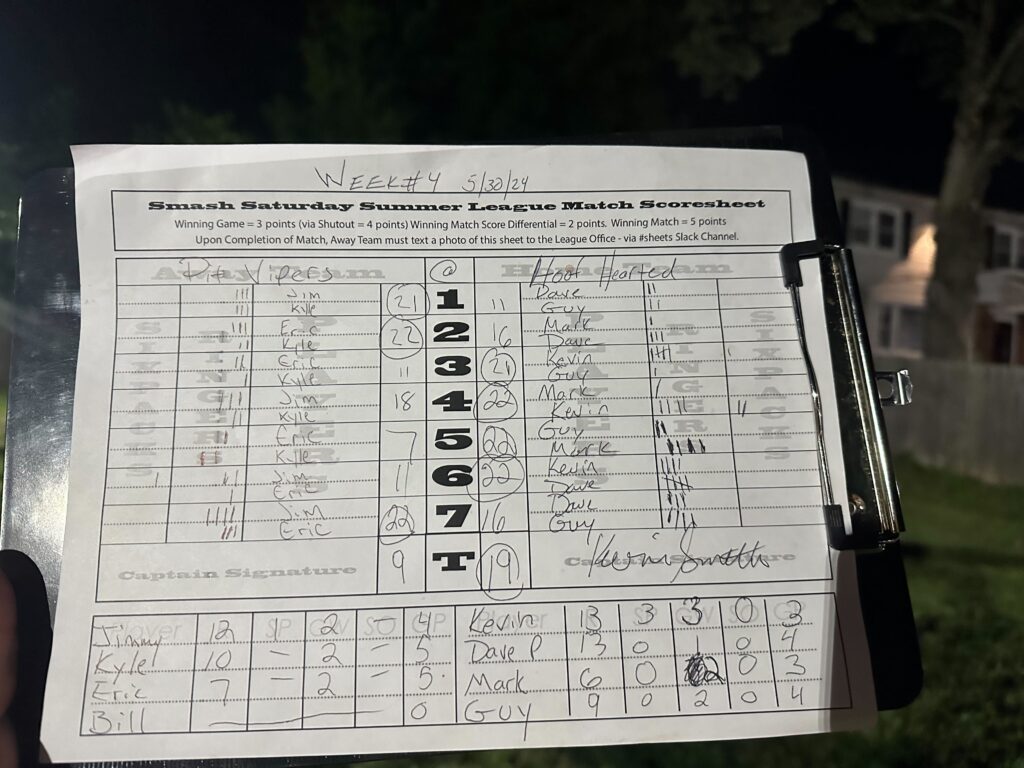 WEEK#4 5/30/24
Smash Saturday Summer League Match Scoresheet
Winning Game = 3 points (via Shutout = 4 points) Winning Match Score Differential = 2 points. Winning Match = 5 points
Upon Completion of Match, Away Team must text a photo of this sheet to the League Office - via #sheets Slack Channel.
Pit Vipers @ Hoof Hearted
Jim 21 1 11 Dave
Kyle Guy
Eric 22 2 16 Mark
Kyle Dave
Eric 11 3 21 Kevin
Kyle Guy
Jim 18 4 22 Mark
Kyle Kevin
Eric 7 5 22 Guy
Kyle Mark
Jim 11 6 22 Kevin
Eric Dave
Jim 22 7 16 Dave
Eric Guy
Captain Signature 9 T 19 Captain Signature Kevin Smith
Jimmy 12 1 2 - 4 Kevin 13 3 3 0 3
Kyle 10 - 2 - 5 Dave P 13 0 1 0 4
Eric 7 - 2 - 5 Mark 6 0 2 0 3
Bill 0 Guy 9 0 2 0 4